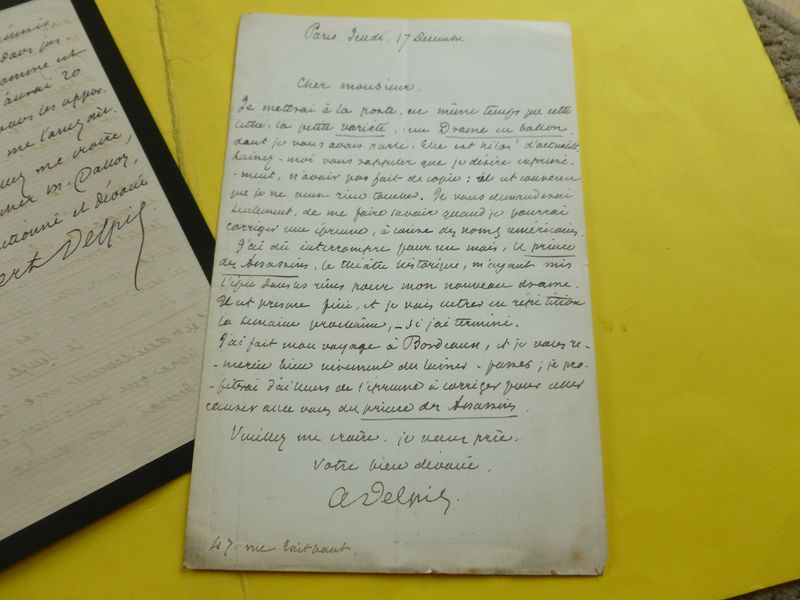 Paris, Jeudi. 17 Décembre.
Cher monsieur.
Je mettrai à la poste, en même temps que cette
lettre, la petite variété, : un Drame en ballon,
dont je vous avais parlé. Elle est hélas! d'actualité
Laissez-moi vous rappeler que je désire expressé-
-ment, n'avoir pas fait de copie; il est convenu
que je ne veux rien toucher. Je vous demanderai
seulement, de me faire savoir quand je pourrai
corriger une épreuve, à cause des noms américains.
J'ai dû interrompre pour un mois, le prince
des Assassins, le théâtre historique, m'ayant mis
l'épée dans les reins pour mon nouveau drame.
Il est presque fini, et je vais entrer en répétition
la semaine prochaine, - si j'ai terminé.
J'ai fait mon voyage à Bordeaux, et je vous re-
-mercie bien vivement du laissez-passer; je pro-
-fiterai d'ailleurs de l'épreuve à corriger pour aller
causer avec vous du prince des Assassins.
Veuillez me croire, je vous prie.
Votre bien dévoué,
A Delpit.
47 rue Taitbout.
dans
20
vous les
me
me croire,
m. Dalloz,
et dévoué
Delpit